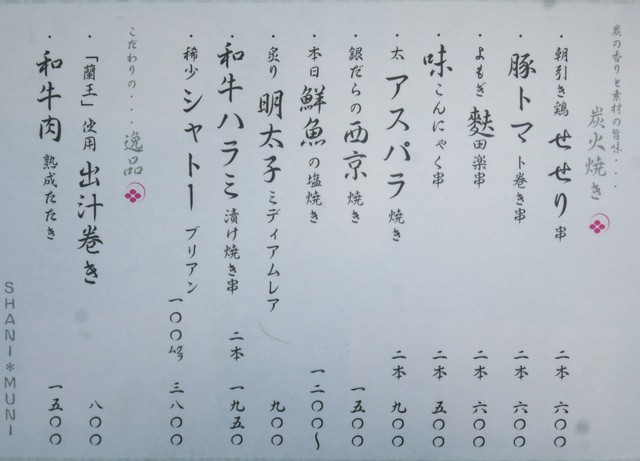 炭の香りと素材の旨味・・・
炭火焼き
・朝引き鶏 せせり串 二本 六〇〇
・豚トマト巻き串 二本 六〇〇
・よもぎ麩田楽串 二本 六〇〇
・味こんにゃく串 二本 五〇〇
・太アスパラ焼き 二本 九〇〇
・銀だらの西京焼き 一五〇〇
・本日鮮魚の塩焼き 一二〇〇〜
・炙り明太子ミディアムレア 九〇〇
・和牛ハラミ漬け焼き串 二本 一九五〇
・稀少シャトーブリアン 一〇〇㌘ 三八〇〇
こだわりの・・・
逸品
・「蘭王」使用 出汁巻き 八〇〇
・和牛肉熟成たたき 一五〇〇
SHANI*MUNI